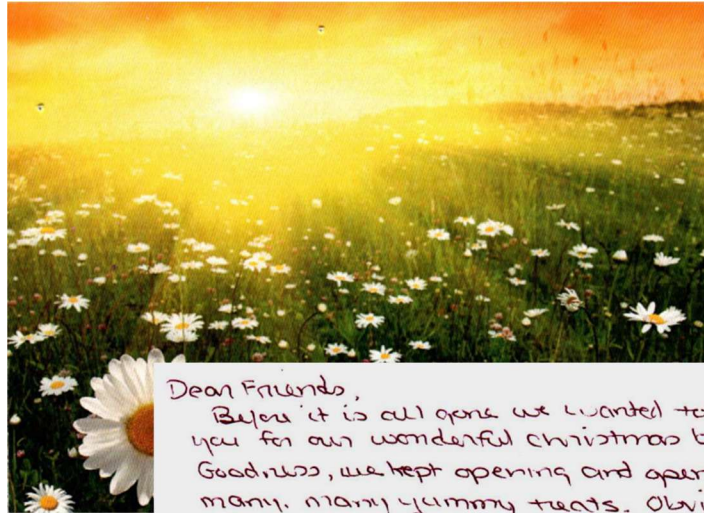 Dear Friends,
Before it is all gone we wanted to
you for our wonderful christmas b
Goodness, we kept opening and open
many, many yummy treats. Obvi